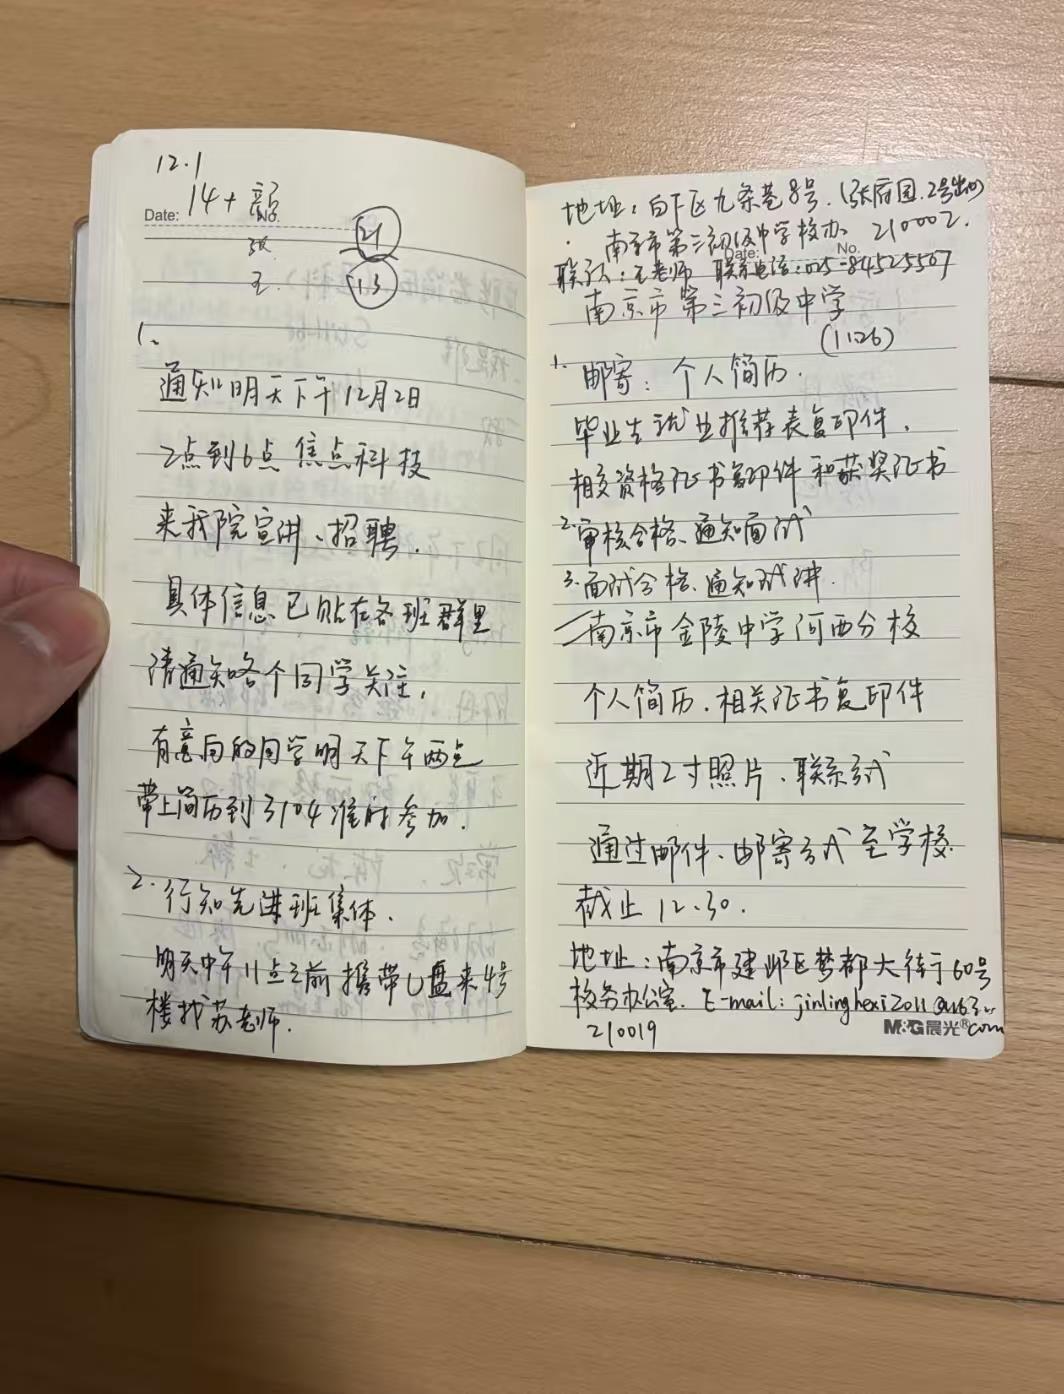 12.1
Date: 14+ No.
21
王 13
1.
通知明天下午12月2日
2点到6点 焦点科技
来我院宣讲、招聘.
具体信息已贴在各班群里
请通知各个同学关注,
有意向的同学明天下午两点
带上简历到3104准时参加.
2. 行知先进班集体.
明天中午11点之前携带U盘来4号
楼找苏老师.
地址:白下区九条巷8号.(张府园.2号出口)
南京市第三初级中学校办. 210002.
Date: No.
联系人:王老师 联系电话:025-84525507
南京市第三初级中学
(1126)
1. 邮寄:个人简历.
毕业生就业推荐表复印件,
相关资格证书复印件和获奖证书
2.审核合格、通知面试
3.面试合格、通知试讲.
南京市金陵中学河西分校
个人简历.相关证书复印件
近期2寸照片、联系方式
通过邮件、邮寄方式至学校.
截止12.30.
地址:南京市建邺区梦都大街60号
校务办公室. E-mail: jinlinghexi2011@163.
com
210019
M&G晨光®